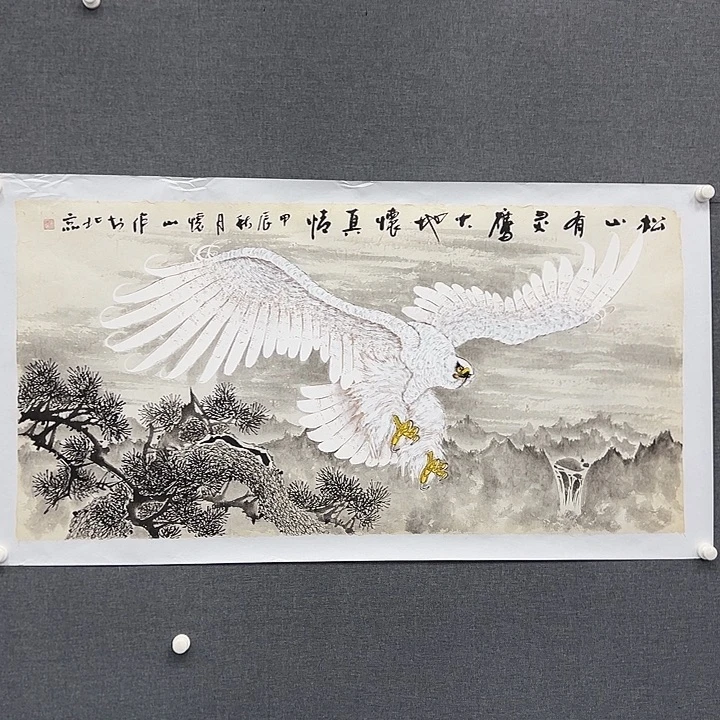 松山有灵鹰大地怀真情甲辰秋月怀山作于北京